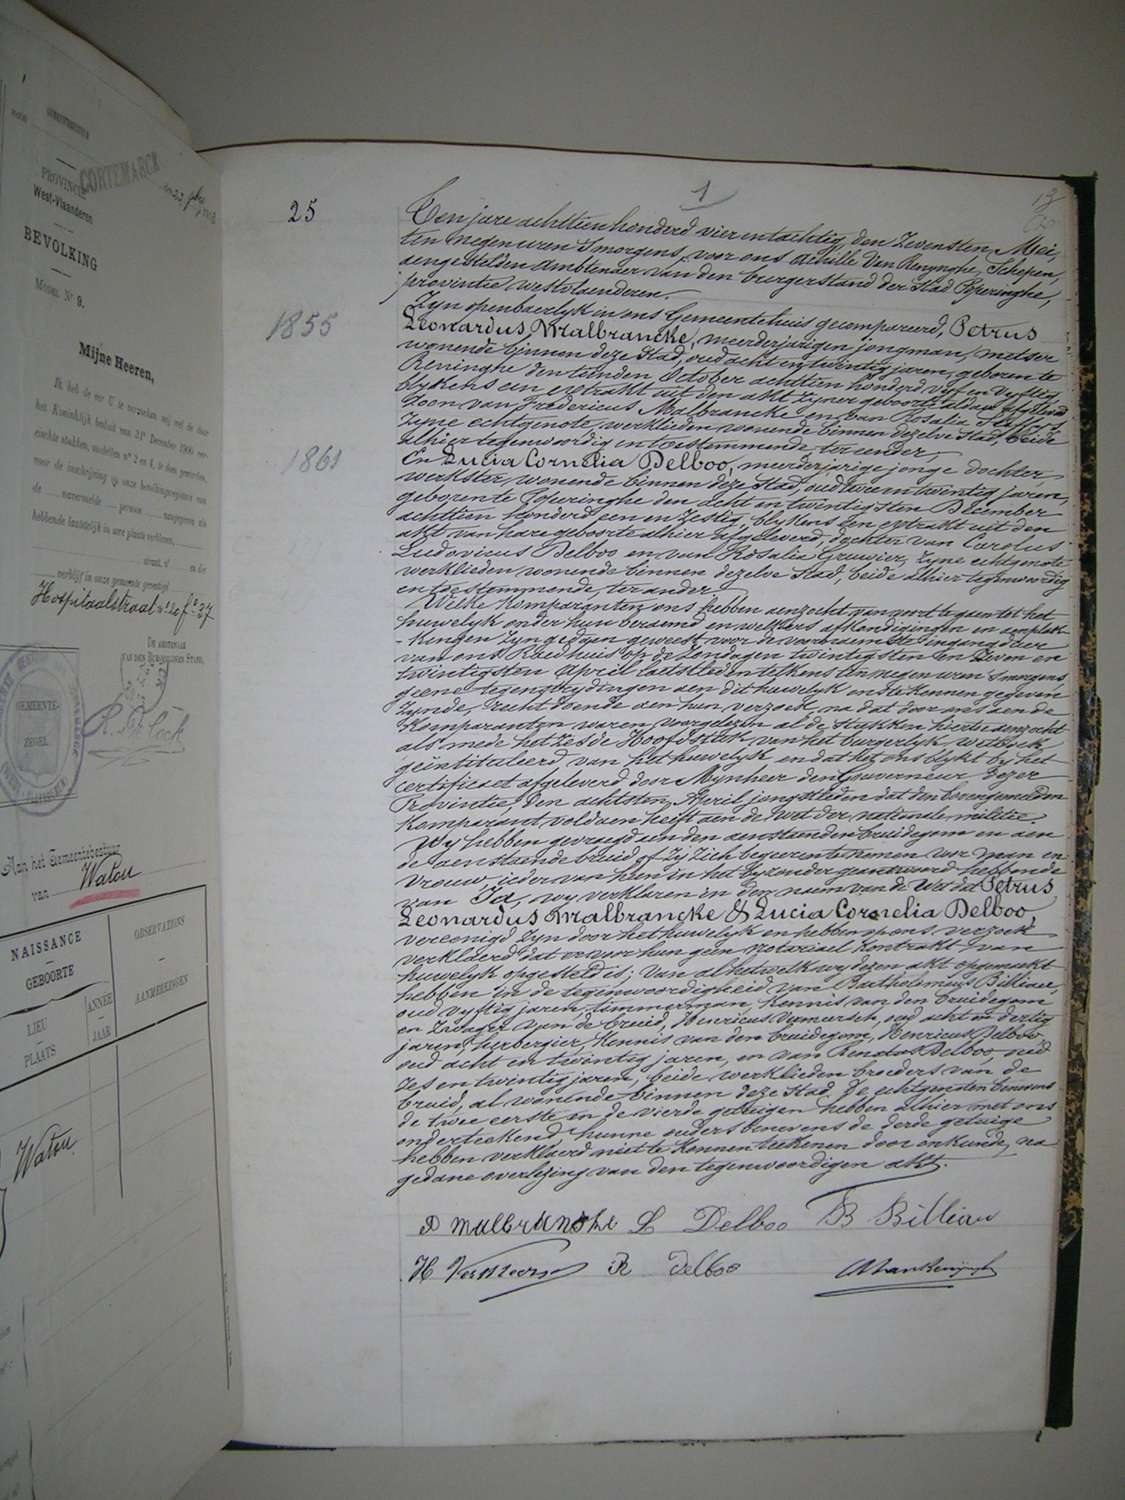 PROVINCIE
West-Vlaanderen
CORTEMARCK
BEVOLKING
Model Nr 9.
Mijne Heeren,
Ik heb de eer U te verzoeken mij met de door
het Koninklijk besluit van 31n December 1900 ver-
eischte stukken, modellen nrs 2 en 4, te doen geworden,
voor de inschrijving op onze bevolkingsregisters van
de navermelde persoon aangegeven als
hebbende laatstelijk in uwe plaats verbleven,
straat, nr en die
verblijf in onze gemeente genomen
Hospitaalstraat nr 20 fo 37
DE AMBTENAAR
VAN DEN BURGERLIJKEN STAND,
GEMEENTE-
ZEGEL
Aan het Gemeentebestuur
van Watou
NAISSANCE
GEBOORTE
OBSERVATIONS
AANMERKINGEN
LIEU
PLAATS
ANNÉE
JAAR
Watou
1
13
25
Ten jare achttien honderd vier en tachtig, den Zevensten Mei,
ten negen uren Smorgens, voor ons Achille Van Renynghe, Schepen,
aengestelden Ambtenaer van den burgerstand der Stad Poperinghe,
provintie westvlaenderen.
Zyn openbaerlyk in ons Gemeentehuis gecompareerd, Petrus
1855
Leonardus Malbrancke, meerderjarigen jongman, metser
wonende binnen deze Stad, oud acht en twintig jaren, geboren te
Reninghe den October achttien honderd vyf en vyftig,
blykens een extrakt uit den akt zyner geboorte afgeleverd
Zoon van Fredericus Malbrancke en van Rosalia
Zyne echtgenote, werklieden wonende binnen dezelve Stad, beide
alhier tegenwoordig en toestemmende, ter eender,
1861
En Lucia Cornelia Delboo, meerderjarige jonge dochter,
werkster, wonende binnen deze Stad, oud twee en twintig jaren,
geboren te Poperinghe den acht en twintigsten December
achttien honderd een en zestig, blykens een extrakt uit den
akt van hare geboorte alhier afgeleverd, dochter van Carolus
Ludovicus Delboo en van Rosalia Gruwier, zyne echtgenote
werklieden wonende binnen dezelve Stad, beide alhier tegenwoordig
en toestemmende, ter ander.
Welke Komparanten ons hebben aenzocht van voort te gaen tot het
huwelyk onder hun beraemd en welkers afkondigingen en aenplak-
kingen Zyn gedaen geweest voor de voornaemste ingangdeur
van ons Raedhuis op de Zondagen twintigsten en Zeven en
twintigsten April laetstleden telkens ten negen uren Smorgens
geene tegenstrydingen aen dit huwelyk ons te kennen gegeven
Zynde, recht doende aen hun verzoek na dat door ons aen de
Komparanten waren voorgelezen al de Stukken hiertoe aenzocht
als mede het Zesde Hoofdstuk van het burgerlyk wetboek
geïntituleerd, van het huwelyk en dat het ons blykt by het
certificaet afgeleverd door Mynheer den Gouverneur dezer
Provintie, den achtsten April jongstleden dat den bovengemelden
Komparant voldaen heeft aen de wet der nationale militie.
Wy hebben gevraegd aen den aenstaenden bruidegom en aen
de aenstaende bruid of Zy Zich begeeren te nemen voor man en
vrouw, ieder van hun in het byzonder geantwoord hebbende
van Ja, wy verklaren in den naem van de Wet dat Petrus
Leonardus Malbrancke & Lucia Cornelia Delboo,
vereenigd Zyn door het huwelyk en hebben op ons verzoek
verklaerd dat er voor hun geen notariael Kontrakt van
huwelyk opgesteld is; van al hetwelk wy dezen akt opgemaekt
hebben in de tegenwoordigheid van Bartholomeus Billiau,
oud vyftig jaren, timmerman, kennis van den bruidegom
en Zwager van de bruid, Henricus Vermeersch, oud acht en dertig
jaren, herbergier, kennis van den bruidegom, Henricus Delboo,
oud acht en twintig jaren, en van Renatus Delboo, oud
Zes en twintig jaren, beide werklieden broeders van de
bruid, al wonende binnen deze Stad. De echtgenoten benevens
de twee eerste en de vierde getuigen hebben alhier met ons
onderteekend, hunne ouders benevens de derde getuige
hebben verklaerd niet te konnen teekenen door onkunde, na
gedane overlezing van den tegenwoordigen akt.
P Malbrancke L Delboo B Billiau
H Vermeersch R Delboo AVanRenynghe